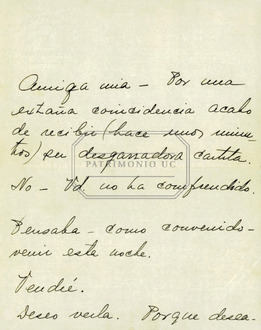 Amiga mia – Por una
extraña coincidencia acabo
de recibir (hace unos minu-
tos) su desgarradora cartita.
PATRIMONIO UC
No – Vd. no ha comprendido.
Pensaba – como convenido –
venir esta noche.
Vendré.
Deseo verla. Porque desea-